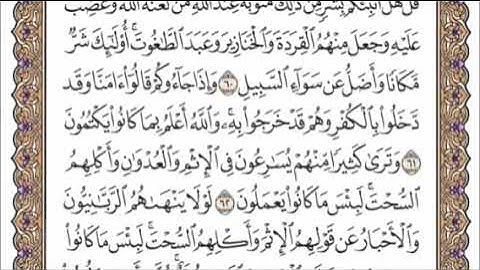 قُلْ هَلْ أُنَبِّئُكُم بِشَرٍّ مِّن ذَٰلِكَ مَثُوبَةً عِندَ اللَّهِ مَن لَّعَنَهُ اللَّهُ وَغَضِبَ
عَلَيْهِ وَجَعَلَ مِنْهُمُ الْقِرَدَةَ وَالْخَنَازِيرَ وَعَبَدَ الطَّاغُوتَ ۚ أُو۟لَٰٓئِكَ شَرٌّ
مَّكَانًا وَأَضَلُّ عَن سَوَآءِ السَّبِيلِ ۝٦٠ وَإِذَا جَآءُوكُمْ قَالُوٓا۟ ءَامَنَّا وَقَد
دَّخَلُوا۟ بِالْكُفْرِ وَهُمْ قَدْ خَرَجُوا۟ بِهِۦ ۚ وَاللَّهُ أَعْلَمُ بِمَا كَانُوا۟ يَكْتُمُونَ
۝٦١ وَتَرَىٰ كَثِيرًا مِّنْهُمْ يُسَٰرِعُونَ فِى الْإِثْمِ وَالْعُدْوَٰنِ وَأَكْلِهِمُ
السُّحْتَ ۚ لَبِئْسَ مَا كَانُوا۟ يَعْمَلُونَ ۝٦٢ لَوْلَا يَنْهَىٰهُمُ الرَّبَّٰنِيُّونَ
وَالْأَحْبَارُ عَن قَوْلِهِمُ الْإِثْمَ وَأَكْلِهِمُ السُّحْتَ ۚ لَبِئْسَ مَا كَانُوا۟